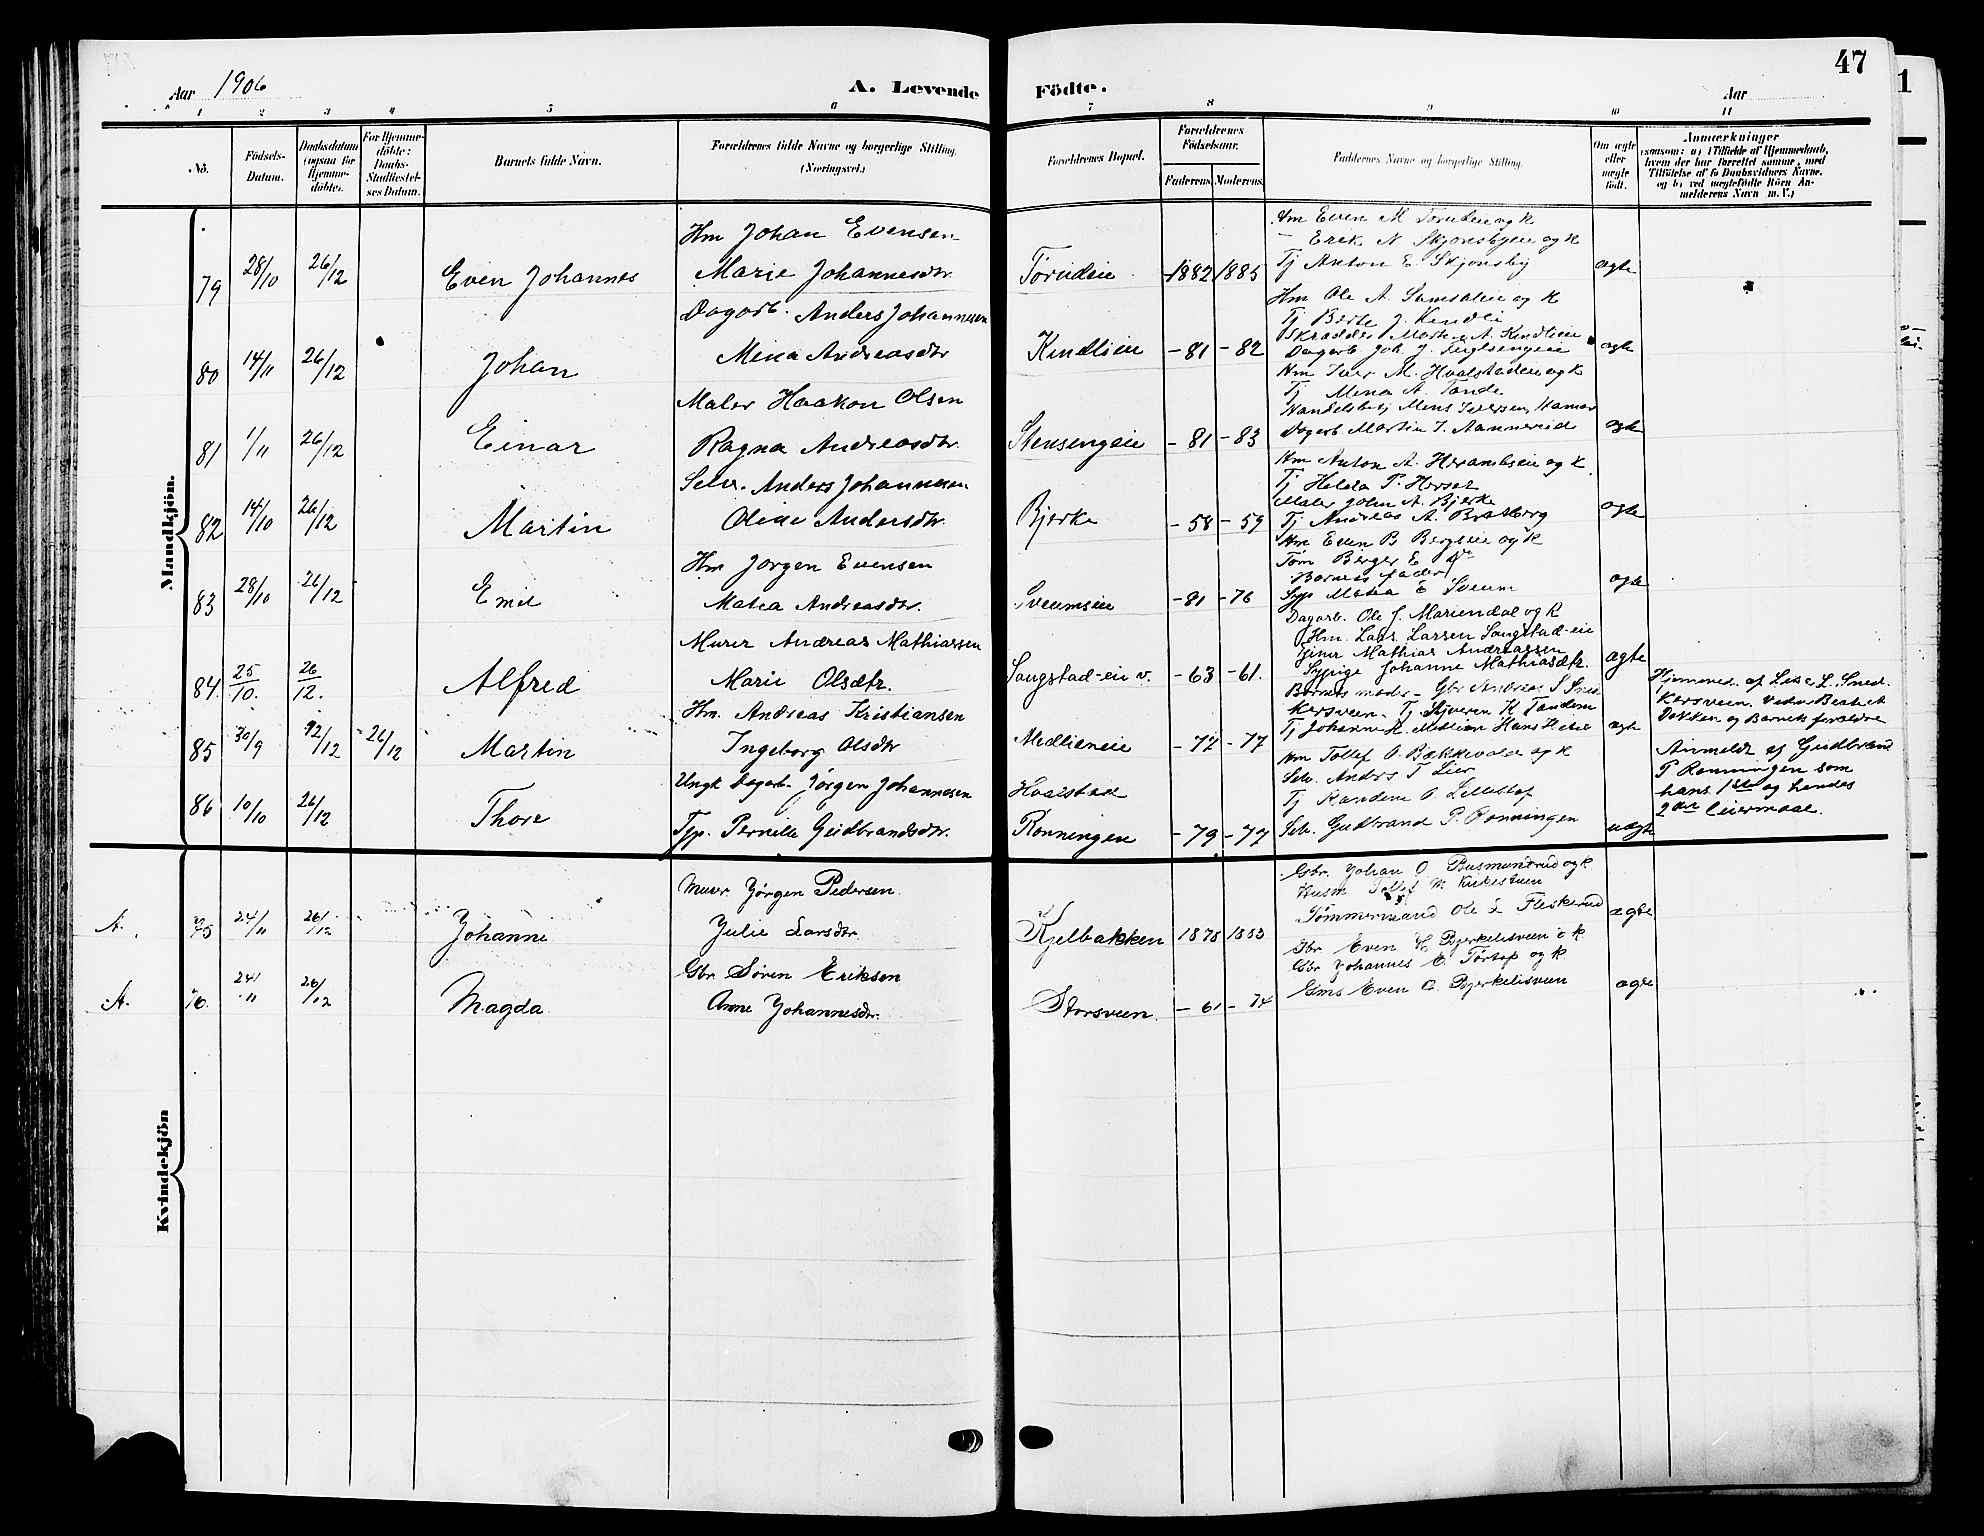 47
Aar 1906 A. Levende Födte. Aar
1 2 3 4 5 6 7 8 9 10 11
No.
Födsels-Datum.
Daabsdatum (ogsaa for Hjemmedöbte).
For Hjemmedöbte: Daabs-Stadfæstelses Datum.
Barnets fulde Navn.
Forældrenes fulde Navne og borgerlige Stilling. (Næringsvei.)
Forældrenes Bopæl.
Forældrenes Födselsaar.
Faderens. Moderens.
Faddernes Navne og borgerlige Stilling.
Om ægte eller uægte födt.
Anmærkninger
(saasom: a) i Tilfælde af Hjemmedaab, hvem der har forrettet samme, med Tilföielse af to Daabsvidners Navne, og b) ved uægtefödte Börn Anmelderens Navn m. V.)
Mandkjön.
79 28/10 26/12 Even Johannes
Hm Johan Evensen
Marie Johannesdtr.
Torudeie 1882 1885
Hm Even M Torudeie og k
Erik N Skjonsbyeie og k
Tj Anton E. Skjonsby
ægte
80 14/11 26/12 Johan
Dagarb. Anders Johannesen
Mina Andreasdtr
Kindlieie -81 -82
Hm Ole A. og k
Tj Berte J. Kindli
Skrædder A. Kindlieie
Dagarb Joh. J.
ægte
81 1/11 26/12 Einar
Maler Haakon Olsen
Ragna Andreasdtr.
Stensengeie -81 -83
Hm Iver M. Hvalstadeie og k
Tj Mina A. Tande
Handelsbetj Mens Iversen, Hamar
Dagarb Martin J. Aannerud
ægte
82 14/10 26/12 Martin
Selv. Anders Johannesen
Oline Andersdtr.
Bjerke -58 -59
Hm Anton A. og k.
Tj Helda P. Herset
Maler John A. Bjerke
Tj Andreas A. Bratberg
ægte
83 28/10 26/12 Emil
Hm Jørgen Evensen
Matea Andreasdtr.
Sveumseie -81 -76
Hm Even B Bergseie og k
Tøm Birger E
Barnets fader
Syp Matea E Sveum
ægte
84. 25/10. 26/12. Alfred
Murer Andreas Mathiassen
Marie Olsdtr.
Saugstad-eie v. -63 -61.
Dagarb. Ole J. Mariendal og k
Hm. Lars Larsen Saugstad-eie
Mathias Andreassen
Sypige Johanne Mathiasdtr.
ægte
85 30/9 12/12 26/12 Martin
Hm. Andreas Kristiansen
Ingeborg Olsdtr
Medlieneie -77 -77
Barnets moder - Gbr Andreas S Snekersveen. Tj Syveren K Tandem
Tj Johanne K. Medlien Hans
ægte
Hjemmed. af Lise L. Snedkersveen. Vidne Berthe Dokken og Barnets forældre
86 10/10 26/12 Thore
Ungk Dagarb. Jørgen Johannesen
Tjp. Pernille Gudbrandsdtr.
Hvalstad
Ronningen -79 -77
Hm Tollef O. Bækkevolden og k
Selv. Anders T Lier
Tj Randine O.
Selv. Gudbrand P. Ronningen
uægte
Anmeldt af Gudbrand P Ronningen som hans 1ste og hendes 2det leiermaal.
Kvindekjön
A. 75 24/11 26/12 Johanne
Murer Jörgen Pedersen
Julie Larsdtr.
Kjelbakken 1878 1883
Gbr. Johan O Busmundrud og k.
Husm Tollef M. Kirkestuen
Tømmermand Ole L Fleskerud
ægte
A. 76. 24/11 26/12 Magda
Gbr Søren Eriksen
Anne Johannesdtr.
Storsveen. -61 -74
Gbr. Even O. Bjerkelisveen o k
Gbr Johannes E. Førtop og k
Gms Even O. Bjerkelisveen
ægte